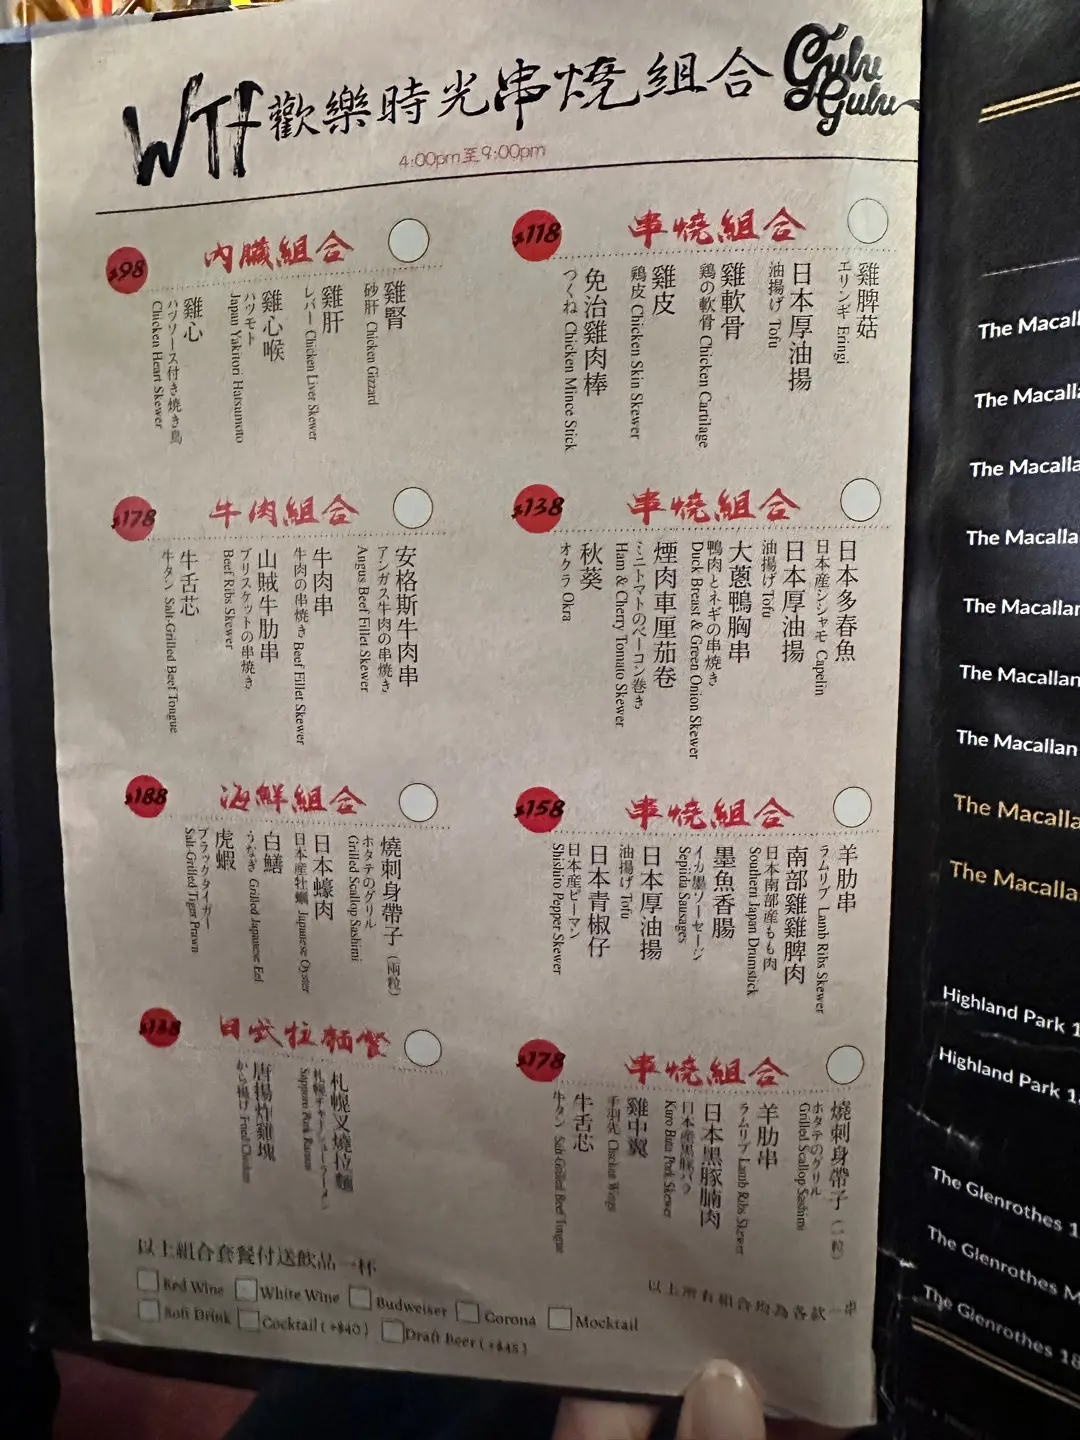 WTF 歡樂時光串燒組合 Gulu Gulu
4:00pm至9:00pm
$118 串燒組合
雞脾菇
エリンギ Eringi
日本厚油揚
油揚げ Tofu
雞軟骨
鶏の軟骨 Chicken Cartilage
雞皮
鶏皮 Chicken Skin Skewer
免治雞肉棒
つくね Chicken Mince Stick
$98 內臟組合
雞腎
砂肝 Chicken Gizzard
雞肝
レバー Chicken Liver Skewer
雞心喉
ハツモト
Japan Yakitori Hatsumoto
雞心
ハツソース付き焼き鳥
Chicken Heart Skewer
$138 串燒組合
日本多春魚
日本産シシャモ Capelin
日本厚油揚
油揚げ Tofu
大蔥鴨胸串
鴨肉とネギの串焼き
Duck Breast & Green Onion Skewer
煙肉車厘茄卷
ミニトマトのベーコン巻き
Ham & Cherry Tomato Skewer
秋葵
オクラ Okra
$178 牛肉組合
安格斯牛肉串
アンガス牛肉の串焼き
Angus Beef Fillet Skewer
牛肉串
牛肉の串焼き Beef Fillet Skewer
山賊牛肋串
ブリスケットの串焼き
Beef Ribs Skewer
牛舌芯
牛タン Salt-Grilled Beef Tongue
$158 串燒組合
羊肋串
ラムリブ Lamb Ribs Skewer
南部雞雞脾肉
日本南部産もも肉
Southern Japan Drumstick
墨魚香腸
イカ墨ソーセージ
Sepiida Sausages
日本厚油揚
油揚げ Tofu
日本青椒仔
日本産ピーマン
Shishito Pepper Skewer
$188 海鮮組合
燒刺身帶子（兩粒）
ホタテのグリル
Grilled Scallop Sashimi
日本蠔肉
日本産牡蠣 Japanese Oyster
白鱔
うなぎ Grilled Japanese Eel
虎蝦
ブラックタイガー
Salt-Grilled Tiger Prawn
$178 串燒組合
燒刺身帶子
ホタテのグリル
Grilled Scallop Sashimi
羊肋串
ラムリブ Lamb Ribs Skewer
日本黑豚腩肉
日本産黒豚バラ
Kuro Buta Pork Skewer
雞中翼
手羽先 Chicken Wings
牛舌芯
牛タン Salt-Grilled Beef Tongue
日式拉麵餐
札幌叉燒拉麵
札幌チャーシューラーメン
Sapporo Pork Ramen
唐揚炸雞塊
から揚げ Fried Chicken
以上所有組合均為各款一串
以上組合套餐付送飲品一杯
Red Wine White Wine Budweiser Corona Mocktail
Soft Drink Cocktail (+$40) Draft Beer (+$48)
The Macall
The Macall
The Macall
The Macalla
The Macallar
The Macallan
The Macallan
The Macalla
The Macalla
Highland Park 1
Highland Park 1
The Glenrothes 1
The Glenrothes M
The Glenrothes 18